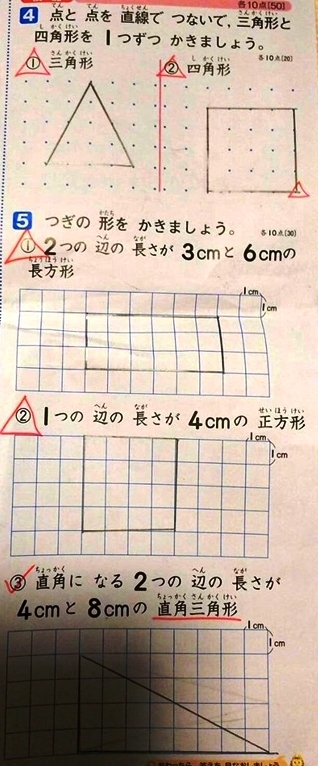 各10点[50]
4 点と 点を 直線で つないで、三角形と
四角形を 1つずつ かきましょう。
① 三角形 ② 四角形 各10点[20]
5 つぎの 形を かきましょう。 各10点[30]
① 2つの 辺の 長さが 3cmと 6cmの
長方形
1cm
1cm
② 1つの 辺の 長さが 4cmの 正方形
1cm
1cm
③ 直角に なる 2つの 辺の 長さが
4cmと 8cmの 直角三角形
1cm
1cm